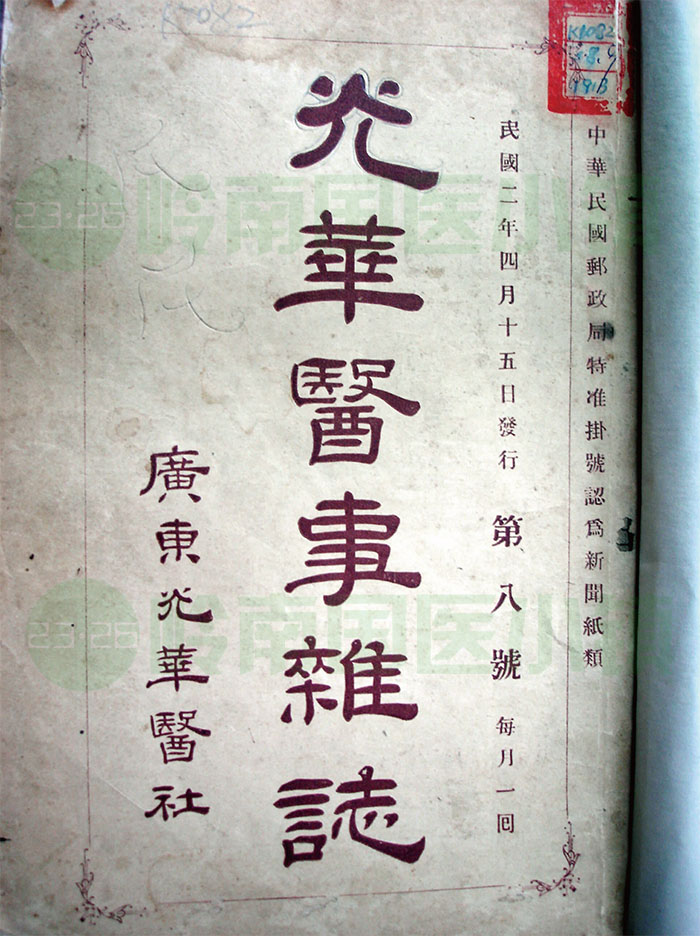 中華民國郵政局特准掛號認爲新聞紙類
民國二年四月十五日發行 第八號 每月一回
光華醫事雜誌
廣東光華醫社
K1082
1913
23·26 岭南国医小
23·26 岭南国医小